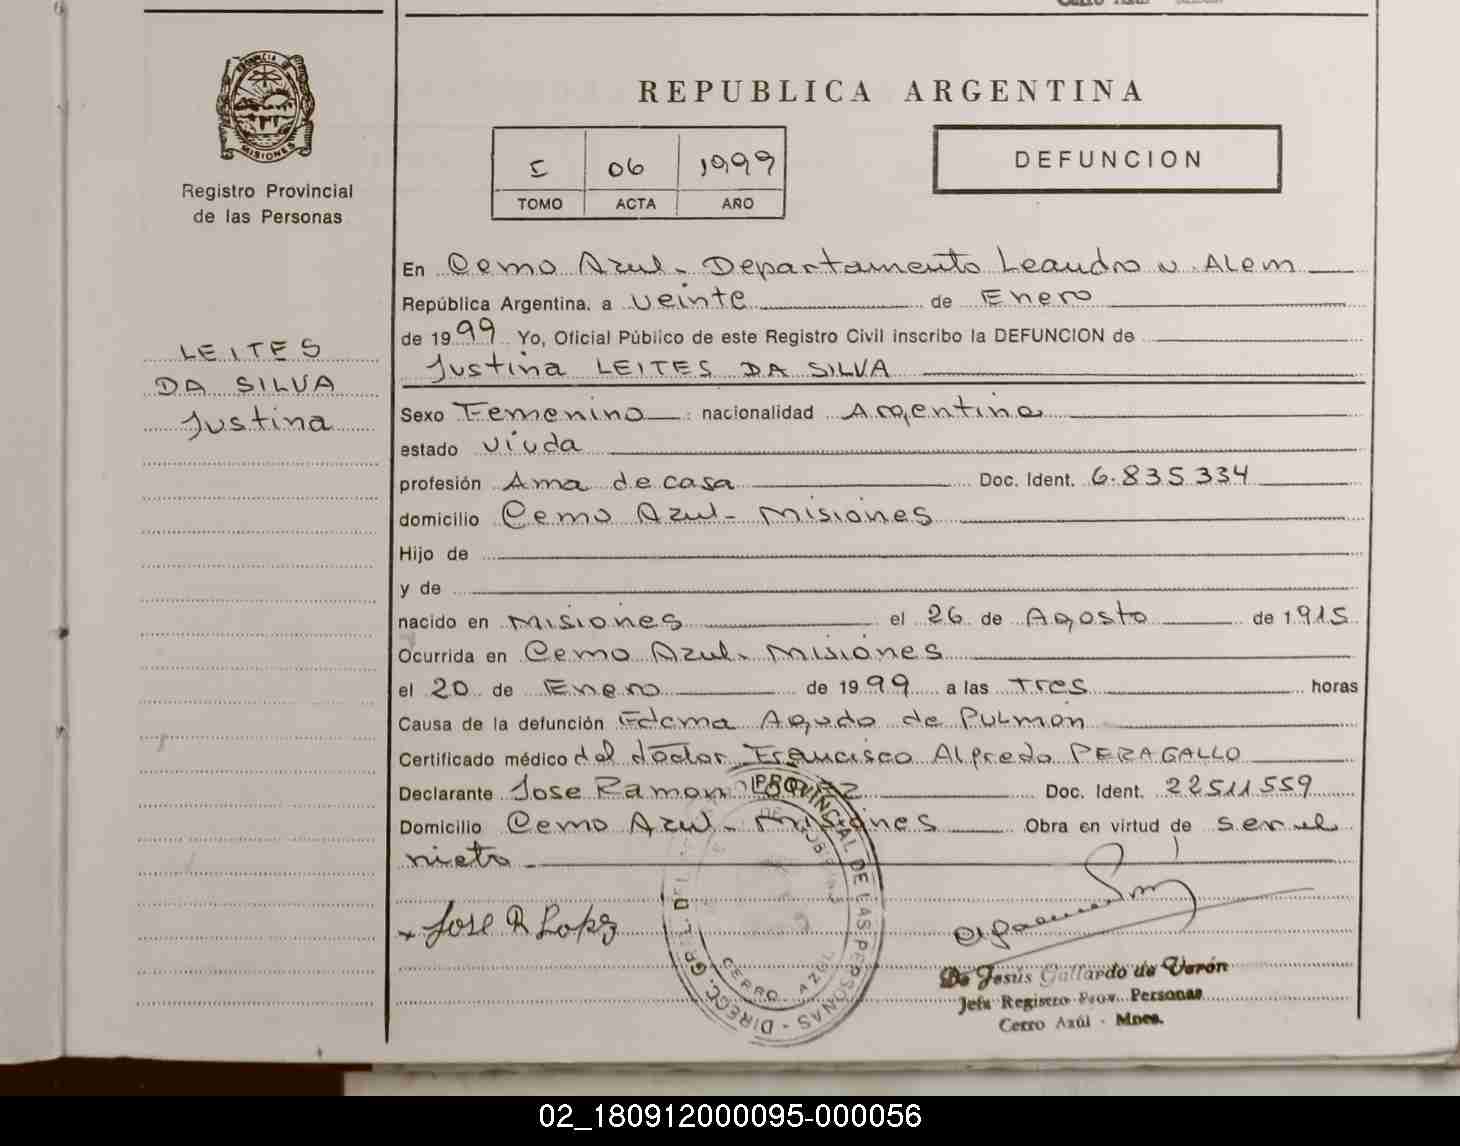 PROVINCIA DE
MISIONES
Registro Provincial
de las Personas
LEITES
DA SILVA
Justina
REPUBLICA ARGENTINA
I 06 1999
TOMO ACTA AÑO
DEFUNCION
En Cerro Azul - Departamento Leandro N. Alem
República Argentina, a veinte de Enero
de 1999 Yo, Oficial Público de este Registro Civil inscribo la DEFUNCION de
Justina LEITES DA SILVA
Sexo Femenino nacionalidad Argentina
estado viuda
profesión Ama de casa Doc. Ident. 6.835.334
domicilio Cerro Azul - Misiones
Hijo de
y de
nacido en Misiones el 26 de Agosto de 1915
Ocurrida en Cerro Azul - Misiones
el 20 de Enero de 1999 a las Tres horas
Causa de la defunción Edema Agudo de Pulmón
Certificado médico del doctor Francisco Alfredo PERAGALLO
Declarante Jose Ramon LOPEZ Doc. Ident. 22511559
Domicilio Cerro Azul - Misiones Obra en virtud de ser el
nieto -
Jose R Lopez
PROVINCIAL DE LAS PERSONAS - DIRECC. GRAL. DEL
CERRO AZUL
De Jesús Gallardo de Verón
Jefa Registro Prov. Personas
Cerro Azúl - Mnes.
02_180912000095-000056